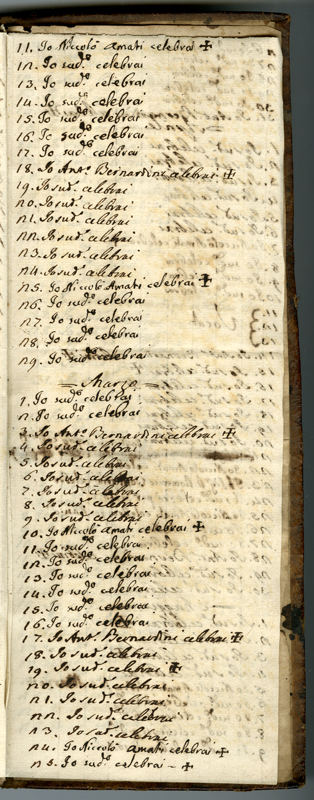 11. Io Niccolò Amati celebrai ✠
12. Io sud.º celebrai
13. Io sud.º celebrai
14. Io sud.º celebrai
15. Io sud.º celebrai
16. Io sud.º celebrai
17. Io sud.º celebrai
18. Io Ant.º Bernardini celebrai ✠
19. Io sud.º celebrai
20. Io sud.º celebrai
21. Io sud.º celebrai
22. Io sud.º celebrai
23. Io sud.º celebrai
24. Io sud.º celebrai
25. Io Niccolò Amati celebrai ✠
26. Io sud.º celebrai
27. Io sud.º celebrai
28. Io sud.º celebrai
29. Io sud.º celebrai
= Marzo =
1. Io sud.º celebrai
2. Io sud.º celebrai
3. Io Ant.º Bernardini celebrai ✠
4. Io sud.º celebrai
5. Io sud.º celebrai
6. Io sud.º celebrai
7. Io sud.º celebrai
8. Io sud.º celebrai
9. Io sud.º celebrai
10. Io Niccolò Amati celebrai ✠
11. Io sud.º celebrai
12. Io sud.º celebrai
13. Io sud.º celebrai
14. Io sud.º celebrai
15. Io sud.º celebrai
16. Io sud.º celebrai
17. Io Ant.º Bernardini celebrai ✠
18. Io sud.º celebrai
19. Io sud.º celebrai ✠
20. Io sud.º celebrai
21. Io sud.º celebrai
22. Io sud.º celebrai
23. Io sud.º celebrai
24. Io Niccolò Amati celebrai ✠
25. Io sud.º celebrai – ✠